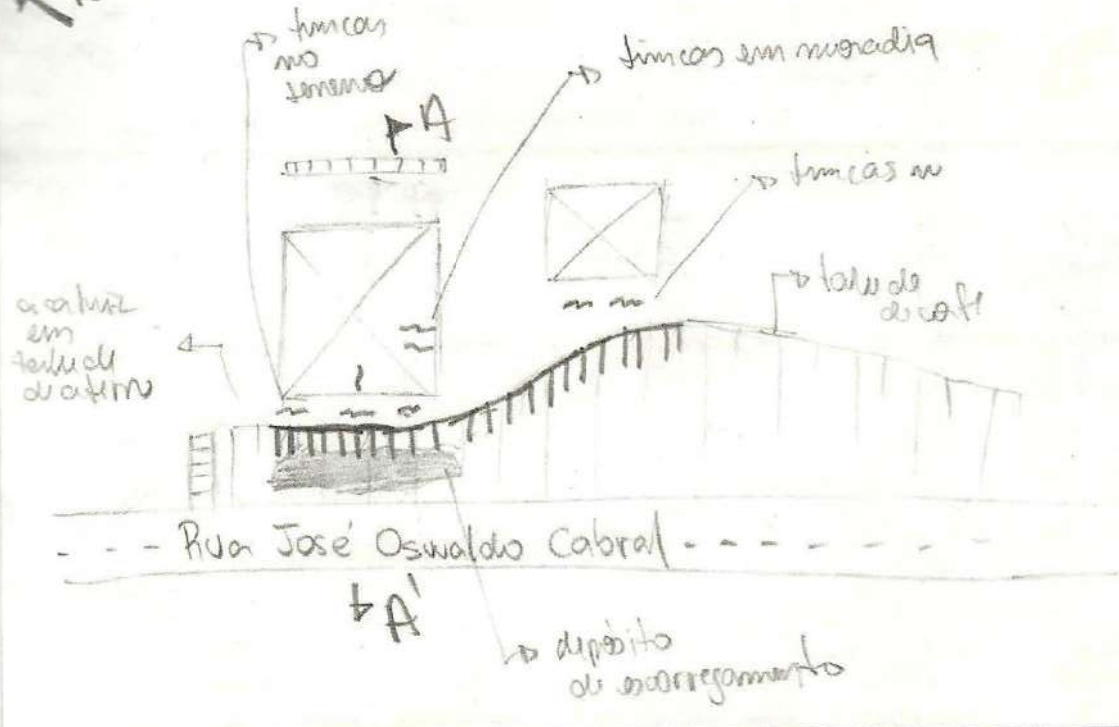 trincas
no
terreno
A
trincas em moradia
trincas n
talude
de corte
cicatriz
em
talude
de aterro
Rua José Oswaldo Cabral
A'
depósito
de escorregamento